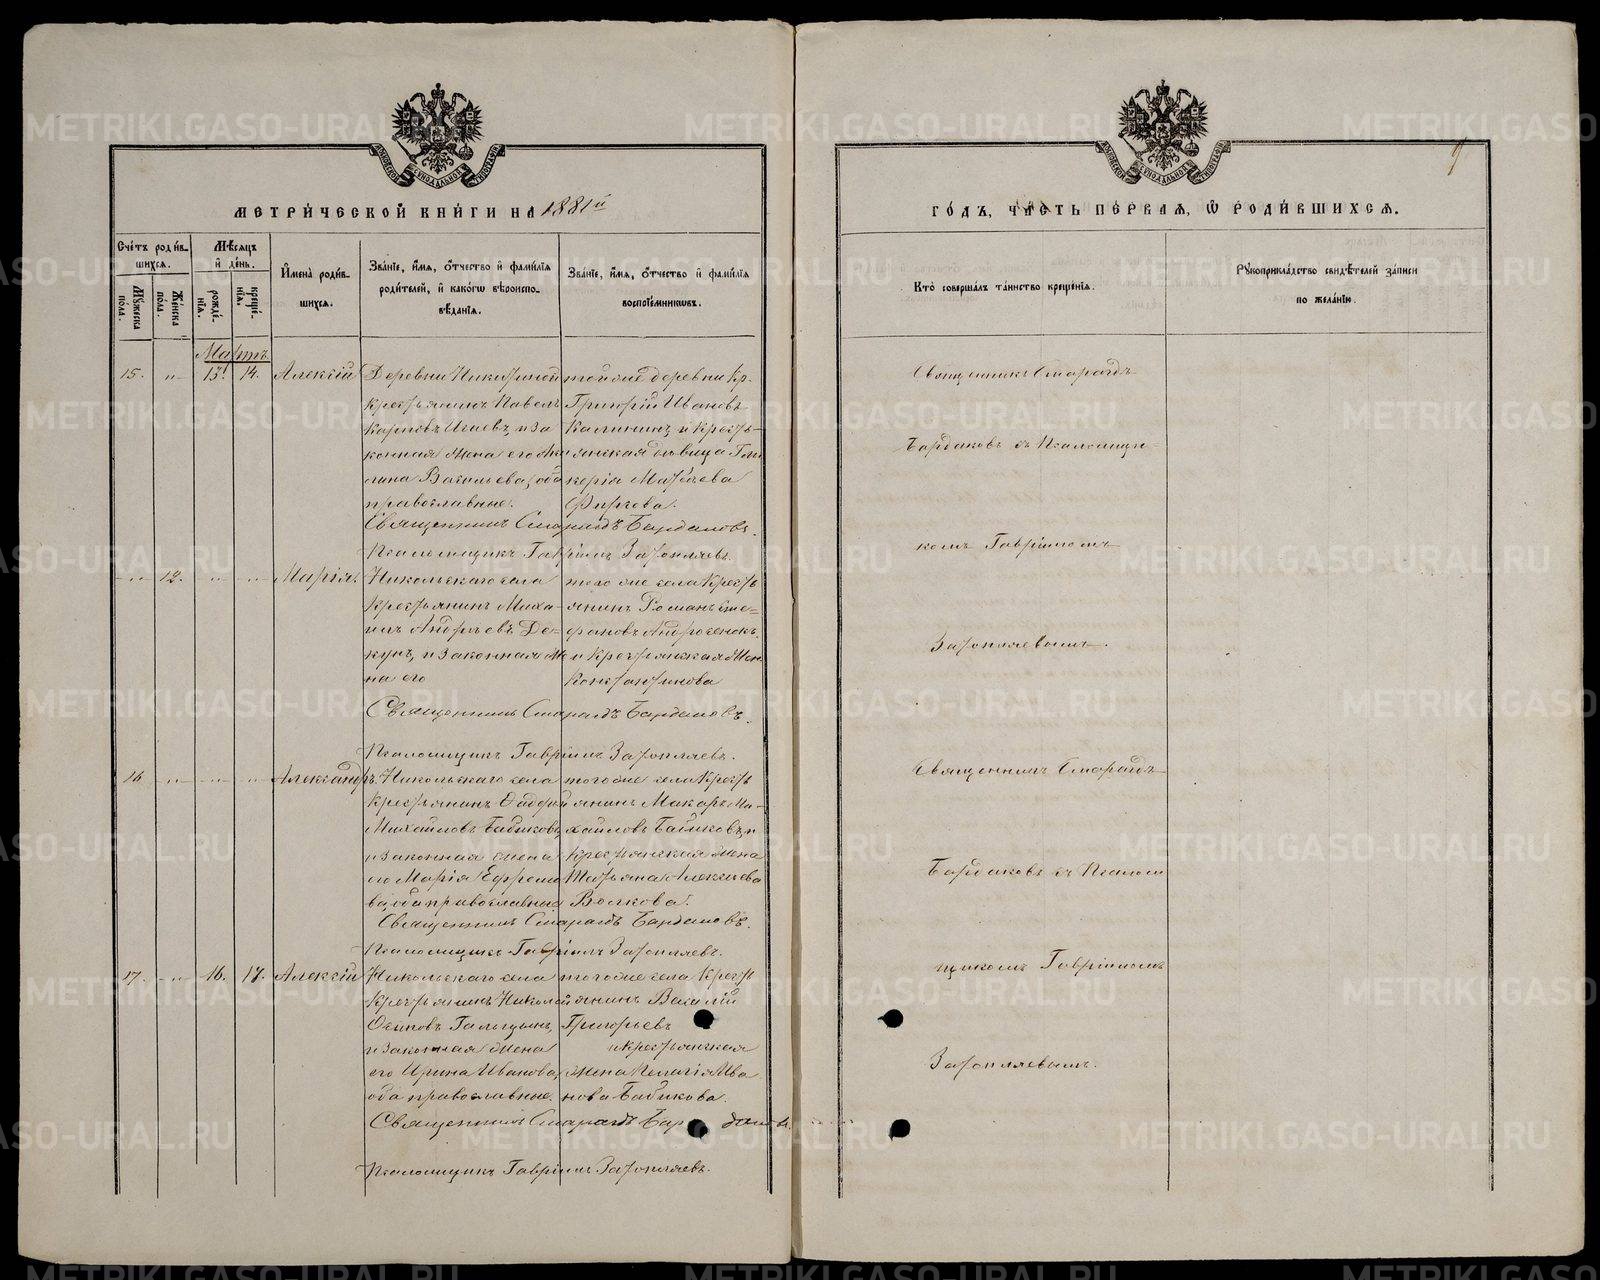 МЕТРИЧЕСКОЙ КНИГИ НА 1881й
Счетъ родив-
шихся.
Мѣсяцъ
и день.
Мужеска
пола.
Женска
пола.
рожде-
нія.
креще-
нія.
Имена родив-
шихся.
Званіе, имя, отчество и фамилія
родителей, и какогѡ вѣроиспо-
вѣданія.
Званіе, имя, отчество и фамилія
воспріемникѡвъ.
Мартъ
15. " 13. 14. Алексій
Деревни Никитиной
крестьянинъ Павелъ
Карповъ и за
конная жена его
Васильева, оба
православные.
тойже деревни Кр.
Григорій Ивановъ
Калининъ и кресть-
янская дѣвица Гли
керія Матѳеева
Фиркова.
Священникъ Смарагдъ Бардаковъ.
Псаломщикъ Гавріилъ Затопляевъ.
" 12. " " Марія
Никольскаго села
крестьянинъ Миха-
илъ Андреевъ Де-
кунъ, и законная же
на его
того же села кресть
янинъ Романъ Сте-
фановъ Андросенокъ
и крестьянская жен
Константинова
Священникъ Смарагдъ Бардаковъ.
Псаломщикъ Гавріилъ Затопляевъ.
16 " " " Александръ
Никольскаго села
крестьянинъ
Михайловъ Бабиковъ
и законная жена
его Марія Ефремо
ва, оба православные
того же села кресть
янинъ Макаръ Ми-
хайловъ Бабиковъ, и
крестьянская жена
Татьяна Алексѣева
Волкова.
Священникъ Смарагдъ Бардаковъ.
Псаломщикъ Гавріилъ Затопляевъ.
17. " 16. 17. Алексій
Никольскаго села
крестьянинъ Николай
Осиповъ Галицынъ,
и законная жена
его Ирина Иванова,
оба православные.
того же села кресть
янинъ Василій
Григорьевъ
и крестьянская
жена Пелагія Ива
нова Бабикова.
Священникъ Смарагдъ Бардаковъ
Псаломщикъ Гавріилъ Затопляевъ.
9
ГОДЪ, ЧАСТЬ ПЕРВАЯ, Ѡ РОДИВШИХСЯ.
Кто совершалъ таинство крещенія.
Рукоприкладство свидѣтелей записи
по желанію.
Священникъ Смарагдъ
Бардаковъ съ Псаломщи-
комъ Гавріиломъ
Затопляевымъ.
Священникъ Смарагдъ
Бардаковъ съ Псалом
щикомъ Гавріиломъ
Затопляевымъ.
METRIKI.GASO-URAL.RU